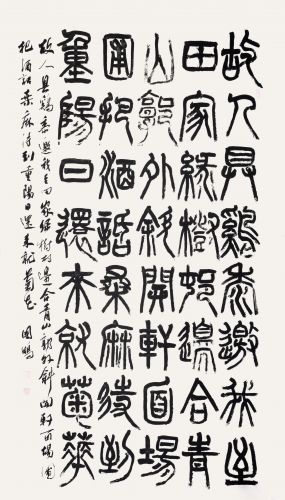 故人具鷄黍邀我至
田家綠樹邨邊合青
山郭外斜開軒面場
圃把酒話桑麻待到
重陽日還來就菊華
故人具鷄黍邀我至田家綠樹村邊合青山郭外斜開軒面場圃
把酒話桑麻待到重陽日還來就菊花